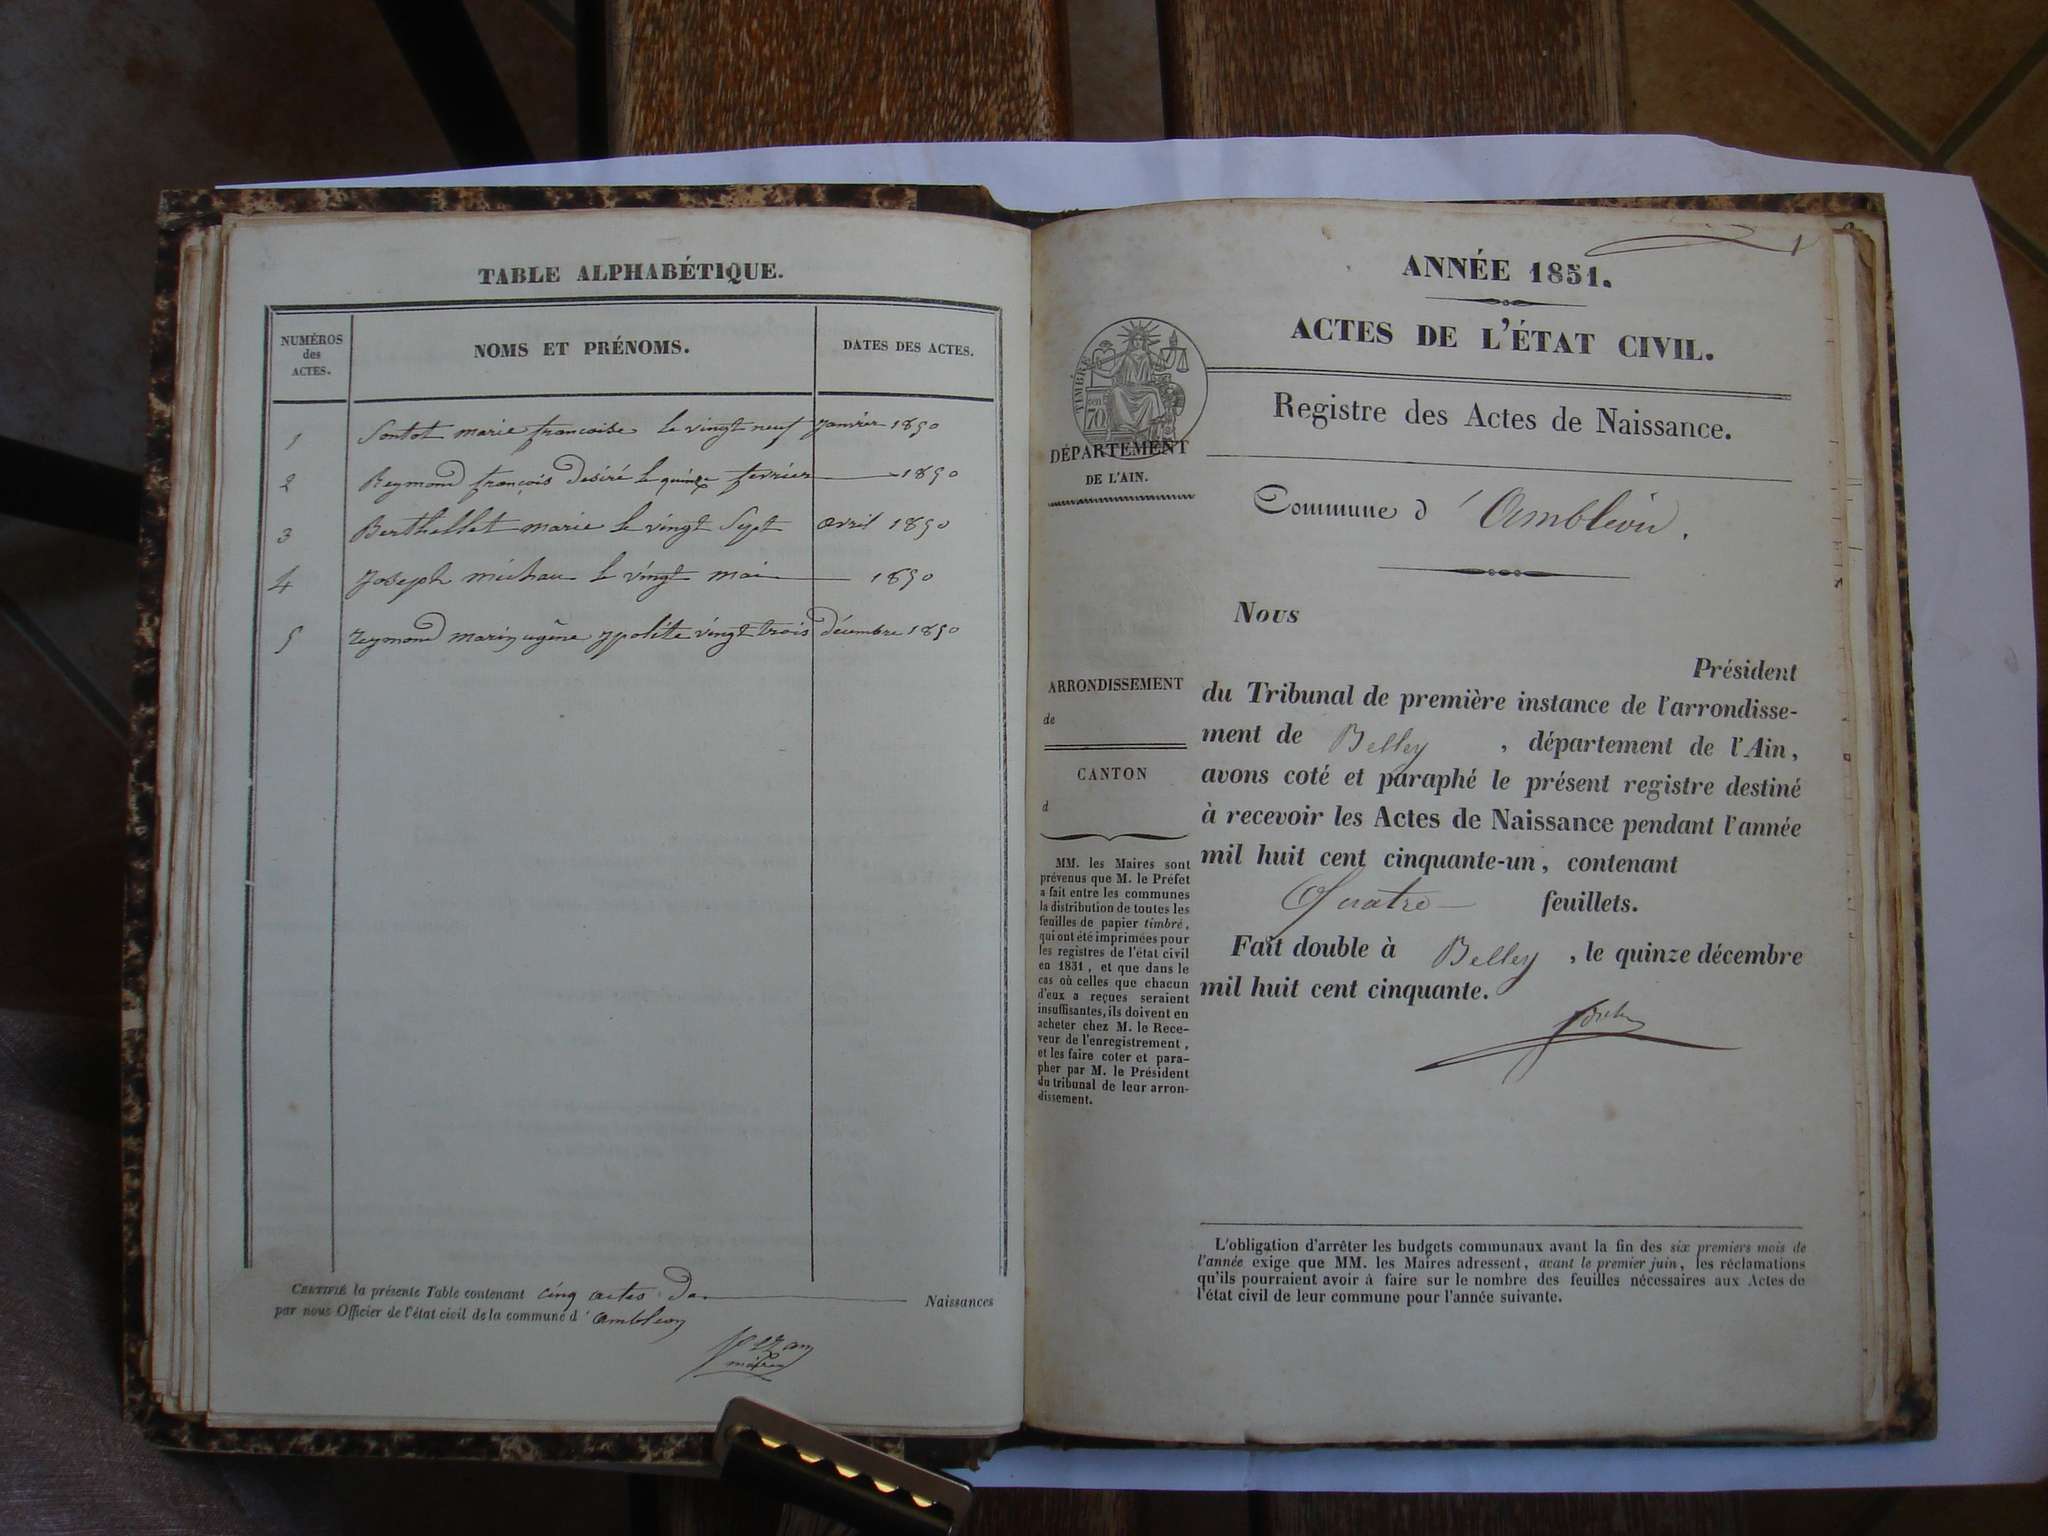 TABLE ALPHABÉTIQUE.
NUMÉROS
des
ACTES.
NOMS ET PRÉNOMS.
DATES DES ACTES.
1 Sontot marie francoise le vingt neuf Janvier 1850
2 Reymond françois desiré le quinze fevrier 1850
3 Berthellet marie le vingt Sept avril 1850
4 Joseph michau le vingt mai 1850
5 reymond marie ugêne ypolite vingt trois décembre 1850
CERTIFIÉ la présente Table contenant cinq actes de Naissances
par nous Officier de l'état civil de la commune d'ambleon
maire
1
ANNÉE 1851.
ACTES DE L'ÉTAT CIVIL.
TIMBRE
70 cen
DÉPARTEMENT
DE L'AIN.
Registre des Actes de Naissance.
Commune d'Ambléon.
Nous
Président
du Tribunal de première instance de l'arrondisse-
ment de Belley, département de l'Ain,
avons coté et paraphé le présent registre destiné
à recevoir les Actes de Naissance pendant l'année
mil huit cent cinquante-un, contenant
Quatre feuillets.
Fait double à Belley, le quinze décembre
mil huit cent cinquante.
ARRONDISSEMENT
de
CANTON
d
MM. les Maires sont
prévenus que M. le Préfet
a fait entre les communes
la distribution de toutes les
feuilles de papier timbré,
qui ont été imprimées pour
les registres de l'état civil
en 1851, et que dans le
cas où celles que chacun
d'eux a reçues seraient
insuffisantes, ils doivent en
acheter chez M. le Rece-
veur de l'enregistrement,
et les faire coter et para-
pher par M. le Président
du tribunal de leur arron-
dissement.
L'obligation d'arrêter les budgets communaux avant la fin des six premiers mois de
l'année exige que MM. les Maires adressent, avant le premier juin, les réclamations
qu'ils pourraient avoir à faire sur le nombre des feuilles nécessaires aux Actes de
l'état civil de leur commune pour l'année suivante.